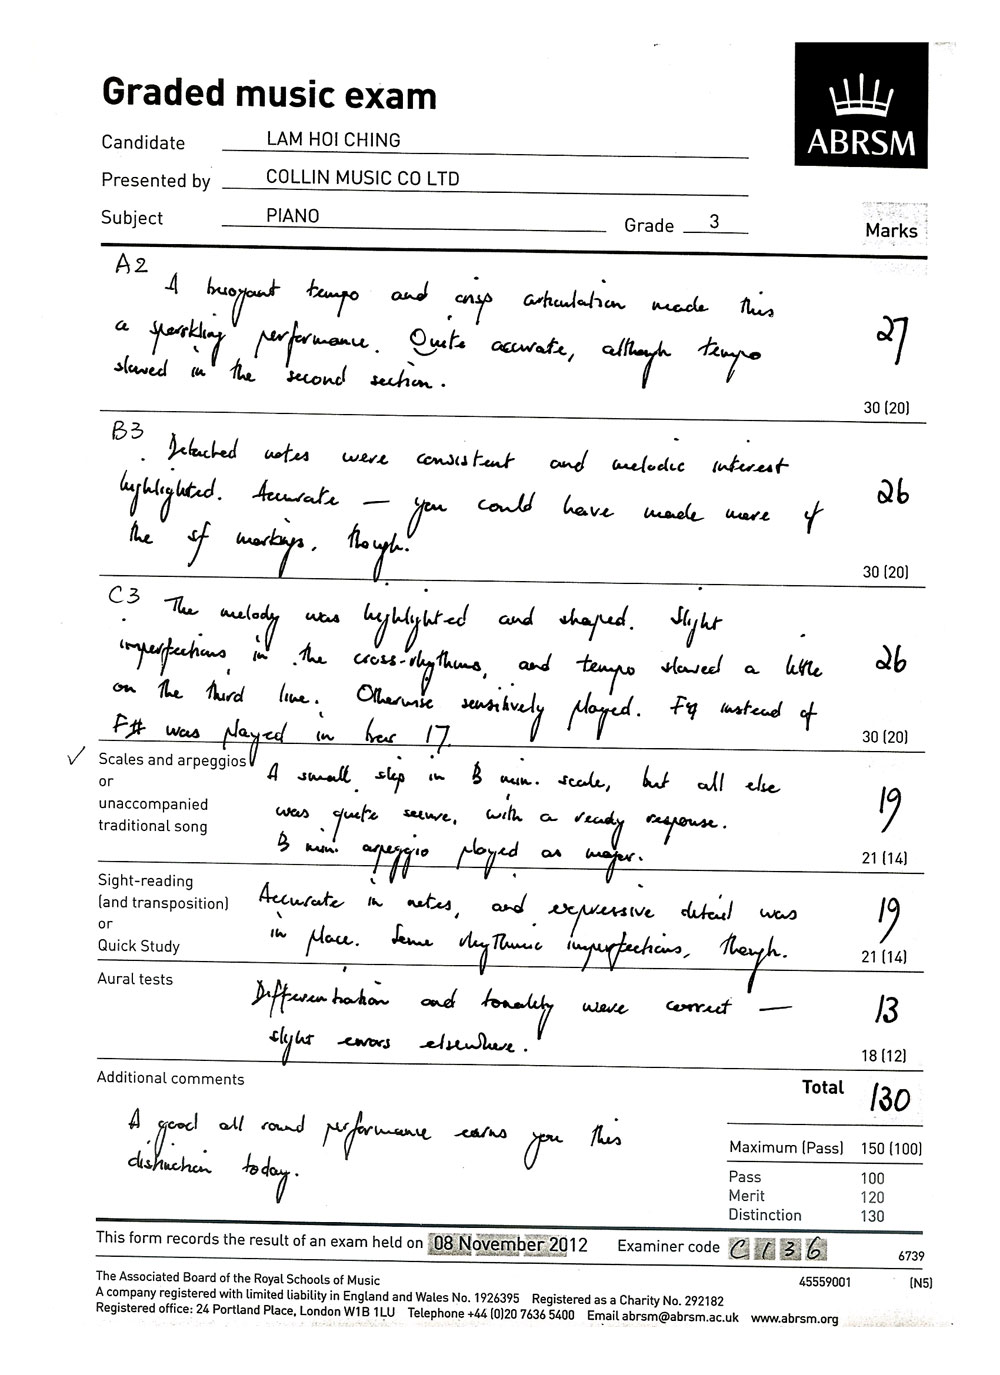 Graded music exam
ABRSM
Candidate LAM HOI CHING
Presented by COLLIN MUSIC CO LTD
Subject PIANO Grade 3 Marks
A2
A buoyant tempo and crisp articulation made this
a sparkling performance. Quite accurate, although tempo
slowed in the second section.
27
30 (20)
B3 Detached notes were consistent and melodic interest
highlighted. Accurate — you could have made more of
the sf markings, though.
26
30 (20)
C3 The melody was highlighted and shaped. Slight
imperfections in the cross-rhythms, and tempo slowed a little
on the third line. Otherwise sensitively played. F♮ instead of
F# was played in bar 17.
26
30 (20)
✓ Scales and arpeggios
or
unaccompanied
traditional song
A small slip in B min. scale, but all else
was quite secure, with a ready response.
B min. arpeggio played as major.
19
21 (14)
Sight-reading
(and transposition)
or
Quick Study
Accurate in notes, and expressive detail was
in place. Some rhythmic imperfections, though.
19
21 (14)
Aural tests
Differentiation and tonality were correct —
slight errors elsewhere.
13
18 (12)
Additional comments
A good all round performance earns you this
distinction today.
Total 130
Maximum (Pass) 150 (100)
Pass 100
Merit 120
Distinction 130
This form records the result of an exam held on 08 November 2012 Examiner code C136 6739
The Associated Board of the Royal Schools of Music 45559001 (N5)
A company registered with limited liability in England and Wales No. 1926395 Registered as a Charity No. 292182
Registered office: 24 Portland Place, London W1B 1LU Telephone +44 (0)20 7636 5400 Email abrsm@abrsm.ac.uk www.abrsm.org